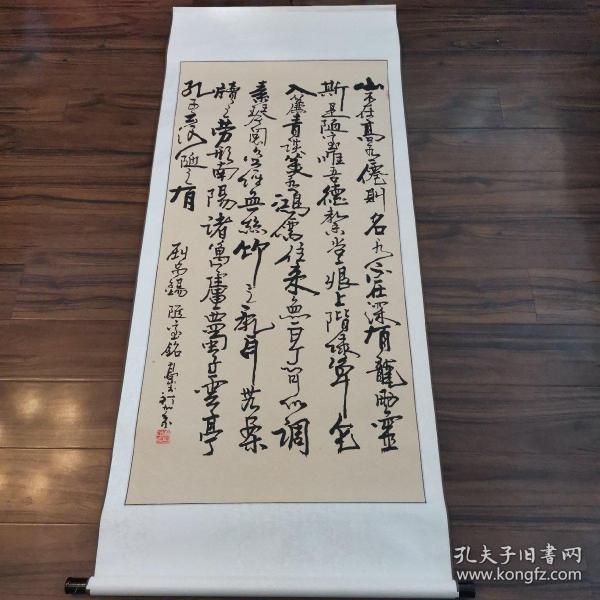 山不在高有仙则名水不在深有龍則靈
斯是陋室唯吾德馨苔痕上階绿草色
入簾青談笑有鴻儒往来無白丁可以調
素琴閱金經無絲竹之亂耳無案
牘之勞形南陽諸葛廬西蜀子雲亭
孔子云何陋之有
劉禹錫 陋室銘
孔夫子旧書网
www.kongfz.com